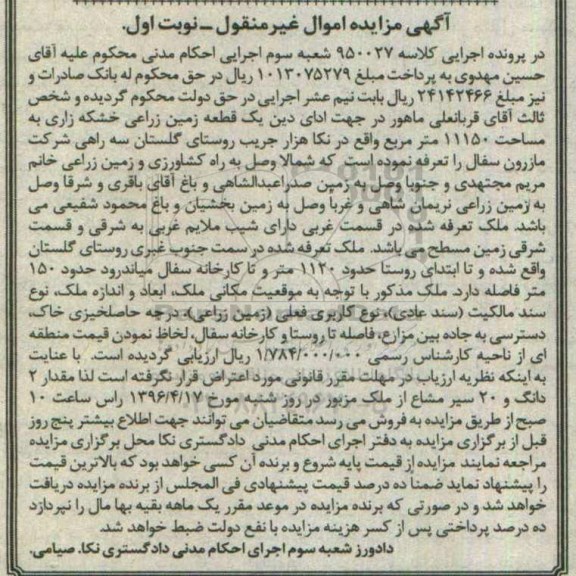 آگهی مزایده اموال غیرمنقول ـ نوبت اول.
در پرونده اجرایی کلاسه ۹۵۰۰۲۷ شعبه سوم اجرایی احکام مدنی محکوم علیه آقای
حسین مهدوی به پرداخت مبلغ ۱۰۱۳۰۷۵۲۷۹ ریال در حق محکوم له بانک صادرات و
نیز مبلغ ۲۴۱۴۲۴۶۶ ریال بابت نیم عشر اجرایی در حق دولت محکوم گردیده و شخص
ثالث آقای قربانعلی ماهور در جهت ادای دین یک قطعه زمین زراعی خشکه زاری به
مساحت ۱۱۱۵۰ متر مربع واقع در نکا هزار جریب روستای گلستان سه راهی شرکت
مازرون سفال را تعرفه نموده است که شمالا وصل به راه کشاورزی و زمین زراعی خانم
مریم مجتهدی و جنوبا وصل به زمین صدراعبدالشاهی و باغ آقای باقری و شرقا وصل
به زمین زراعی نریمان شاهی و غربا وصل به زمین بخشیان و باغ محمود شفیعی می
باشد. ملک تعرفه شده در قسمت غربی دارای شیب ملایم غربی به شرقی و قسمت
شرقی زمین مسطح می باشد. ملک تعرفه شده در سمت جنوب غیری روستای گلستان
واقع شده و تا ابتدای روستا حدود ۱۱۲۰ متر و تا کارخانه سفال میاندرود حدود ۱۵۰
متر فاصله دارد. ملک مذکور با توجه به موقعیت مکانی ملک، ابعاد و اندازه ملک، نوع
سند مالکیت (سند عادی)، نوع کاربری فعلی (زمین زراعی)، درجه حاصلخیزی خاک،
دسترسی به جاده بین مزارع، فاصله تا روستا و کارخانه سفال، لحاظ نمودن قیمت منطقه
ای از ناحیه کارشناس رسمی ۱/۷۸۴/۰۰۰/۰۰۰ ریال ارزیابی گردیده است. با عنایت
به اینکه نظریه ارزیاب در مهلت مقرر قانونی مورد اعتراض قرار نگرفته است لذا مقدار ۲
دانگ و ۲۰ سیر مشاع از ملک مزبور در روز شنبه مورخ ۱۳۹۶/۴/۱۷ راس ساعت ۱۰
صبح از طریق مزایده به فروش می رسد متقاضیان می توانند جهت اطلاع بیشتر پنج روز
قبل از برگزاری مزایده به دفتر اجرای احکام مدنی دادگستری نکا محل برگزاری مزایده
مراجعه نمایند. مزایده از قیمت پایه شروع و برنده آن کسی خواهد بود که بالاترین قیمت
را پیشنهاد نماید ضمنا ده درصد قیمت پیشنهادی فی المجلس از برنده مزایده دریافت
خواهد شد و در صورتی که برنده مزایده در موعد مقرر یک ماهه بقیه بها مال را نپردازد
ده درصد پرداختی پس از کسر هزینه مزایده با نفع دولت ضبط خواهد شد.
دادورز شعبه سوم اجرای احکام مدنی دادگستری نکا. صیامی.